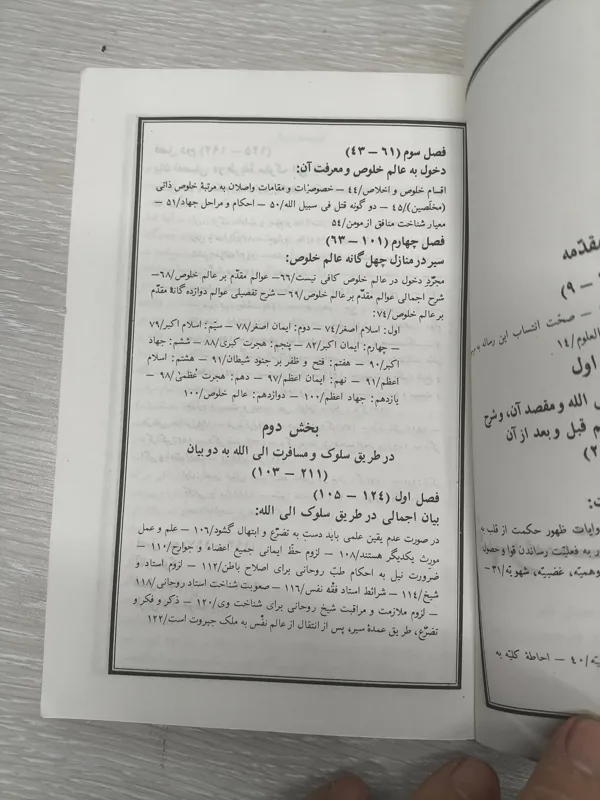 فصل سوم (۶۱ – ۴۳)
دخول به عالم خلوص و معرفت آن:
اقسام خلوص و اخلاص/۴۴ – خصوصیّات و مقامات واصلان به مرتبهٔ خلوص ذاتی
(مخلَصین)/۴۵ – دو گونه قتل فی سبیل الله/۵۰ – احکام و مراحل جهاد/۵۱ –
معیار شناخت منافق از مومن/۵۴
فصل چهارم (۱۰۱ – ۶۳)
سیر در منازل چهل گانه عالم خلوص:
مجرّد دخول در عالم خلوص کافی نیست/۶۶– عوالم مقدّم بر عالم خلوص/۶۸–
شرح اجمالی عوالم مقدّم بر عالم خلوص/۶۹ – شرح تفصیلی عوالم دوازده گانهٔ مقدّم
بر عالم خلوص/۷۴:
اول: اسلام اصغر/۷۴ – دوم: ایمان اصغر/۷۸ – سیّم: اسلام اکبر/۷۹
– چهارم: ایمان اکبر/۸۲ – پنجم: هجرت کبری/۸۸ – ششم: جهاد
اکبر/۹۰ – هفتم: فتح و ظفر بر جنود شیطان/۹۱ – هشتم: اسلام
اعظم/۹۱ – نهم: ایمان اعظم/۹۷ – دهم: هجرت عُظمیٰ/۹۸ –
یازدهم: جهاد اعظم/۱۰۰ – دوازدهم: عالم خلوص/۱۰۰
بخش دوم
در طریق سلوک و مسافرت الی الله به دو بیان
(۲۱۱ – ۱۰۳)
فصل اول (۱۲۴ – ۱۰۵)
بیان اجمالی در طریق سلوک الی الله:
در صورت عدم یقین علمی باید دست به تضرّع و ابتهال گشود/۱۰۶ – علم و عمل
مورث یکدیگر هستند/۱۰۸ – لزوم حظّ ایمانی جمیع اعضاء و جوارح/۱۱۰ –
ضرورت نیل به احکام طبّ روحانی برای اصلاح باطن/۱۱۲ – لزوم استاد و
شیخ/۱۱۴ – شرائط استاد فقه نفس/۱۱۶ – صعوبت شناخت استاد روحانی/۱۱۸
– لزوم ملازمت و مراقبت شیخ روحانی برای شناخت وی/۱۲۰ – ذکر و فکر و
تضرّع، طریق عمدهٔ سیر، پس از انتقال از عالم نفْس به ملک جبروت است/۱۲۲
مقدّمه
– ۹)
– صحّت انتساب این رساله به
العلوم/۱۴
اول
الله و مقصد آن، و شرح
قبل و بعد از آن
روایات ظهور حکمت از قلب
به فعلیّت رساندن قوا و حصول
وهمیّه، غضبیّه، شهویّه/۳۱–
/۴۰ – احاطهٔ کلیّه به